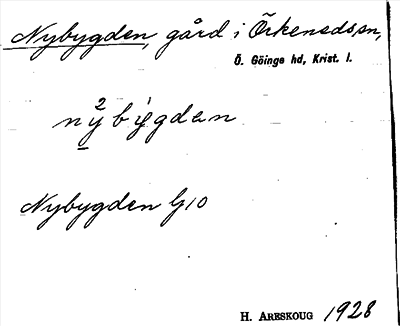 Nybygden, gård i Örkeneds sn,
Ö. Göinge hd, Krist. l.
nybygdan
Nybygden G10
H. Areskoug 1928